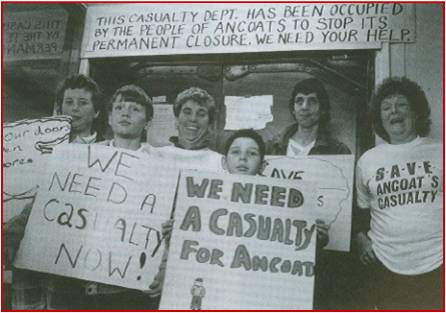 THIS CASUALTY DEPT. HAS BEEN OCCUPIED
BY THE PEOPLE OF ANCOATS TO STOP ITS
PERMANENT CLOSURE. WE NEED YOUR HELP.
OUR DOORS
WE
NEED A
CASUALTY
NOW!
WE NEED
A CASUALTY
FOR ANCOATS
S·A·V·E
ANCOAT'S
CASUALTY